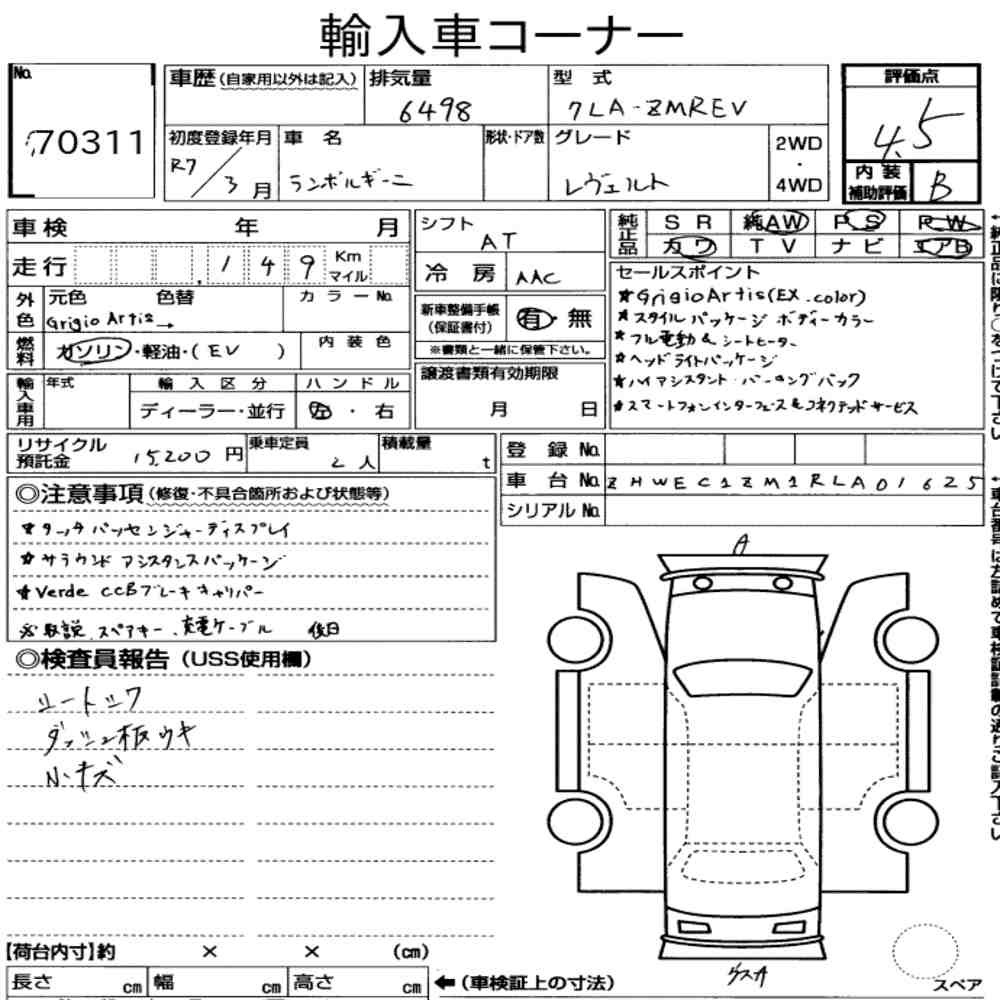 輸入車コーナー
No.
70311
車歴(自家用以外は記入)
排気量
6498
型式
7LA-ZMREV
評価点
4.5
初度登録年月
R7/3月
車名
ランボルギーニ
形状・ドア数
グレード
レヴェルト
2WD
・
4WD
内装
補助評価
B
車検 年 月
走行 ,149 Km マイル
シフト
AT
冷房
AAC
純正品
SR 純AW PS PW
カワ TV ナビ エアB
外色
元色 色替 カラーNo.
Grigio Artis→
燃料
ガソリン・軽油・(EV )
内装色
新車整備手帳
(保証書付)
有・無
※書類と一緒に保管下さい。
セールスポイント
★Grigio Artis(EX.color)
★スタイルパッケージ ボディーカラー
★フル電動&シートヒーター
★ヘッドライトパッケージ
★ハイアシスタント・パーキングパック
★スマートフォンインターフェース&コネクテッドサービス
輸入車用
年式
輸入区分
ディーラー・並行
ハンドル
左・右
譲渡書類有効期限
月 日
リサイクル
預託金
15,200円
乗車定員
2人
積載量
t
登録No.
車台No. ZHWEC1ZM1RLA01625
シリアルNo.
◎注意事項(修復・不具合箇所および状態等)
★タッチパッセンジャーディスプレイ
★サラウンドアシスタンスパッケージ
★Verde CCBブレーキキャリパー
※取説.スペアキー.充電ケーブル 後日
◎検査員報告(USS使用欄)
シートシワ
ダッシュ板ウキ
小キズ
A
【荷台内寸】約 × × (cm)
長さ cm 幅 cm 高さ cm
←(車検証上の寸法)
スペア